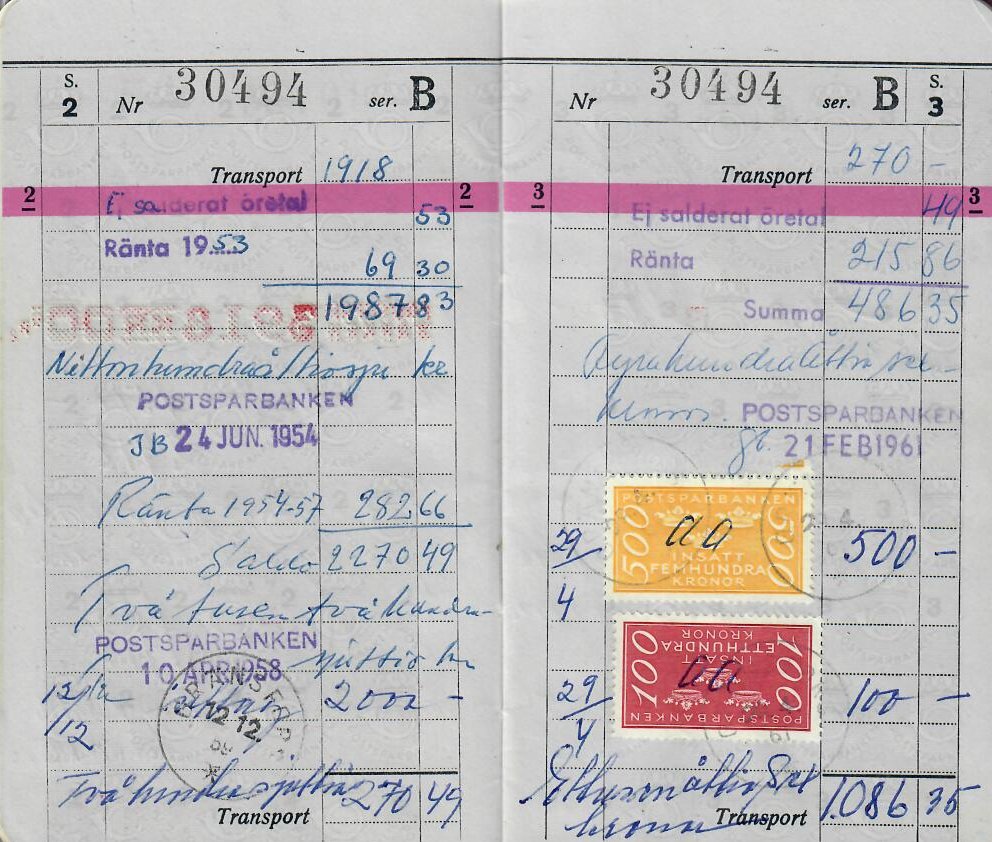 S. 2 Nr 30494 ser. B
Transport 1918
2 Ej salderat öretal 53 2
Ränta 1953 69 30
1987 83
Nittonhundraåttiosju kr
POSTSPARBANKEN
JB 24 JUN. 1954
Ränta 1954-57 282 66
Saldo 2270 49
Två tusen två hundra-
POSTSPARBANKEN
sjuttio kr
10 APR 1958
12/12 2000 -
12.12.
Två hundra sjuttio 270 49
Transport
Nr 30494 ser. B S. 3
Transport 270 -
3 Ej salderat öretal 49 3
Ränta 215 86
Summa 486 35
Fyrahundraåttiosex-
kronor POSTSPARBANKEN
21 FEB 1961
POSTSPARBANKEN
500 aa 500
INSATT
FEMHUNDRA
KRONOR
29/4 500 -
100 aa 100
INSATT
ETTHUNDRA
KRONOR
POSTSPARBANKEN
29/4 100 -
Ettusenåttiosex
kronor Transport 1.086 35